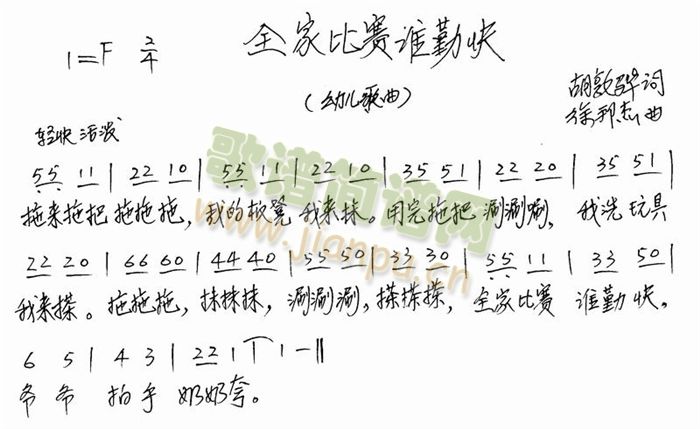 全家比赛谁勤快
1=F 2/4
(幼儿歌曲)
胡敦骅词
徐邦杰曲
轻快 活泼
55 11 | 22 10 | 55 11 | 22 10 | 35 51 | 22 20 | 35 51 |
拖来拖把 拖拖拖，我的板凳 我来抹。用完拖把 涮涮涮，我洗玩具
22 20 | 66 60 | 44 40 | 55 50 | 33 30 | 55 11 | 33 50 |
我来搽。拖拖拖，抹抹抹，涮涮涮，搽搽搽，全家比赛 谁勤快，
6 5 | 4 3 | 22 1 | 1 - ‖
爷爷 拍手 奶奶夸。
歌谱简谱网
www.jianpu.cn